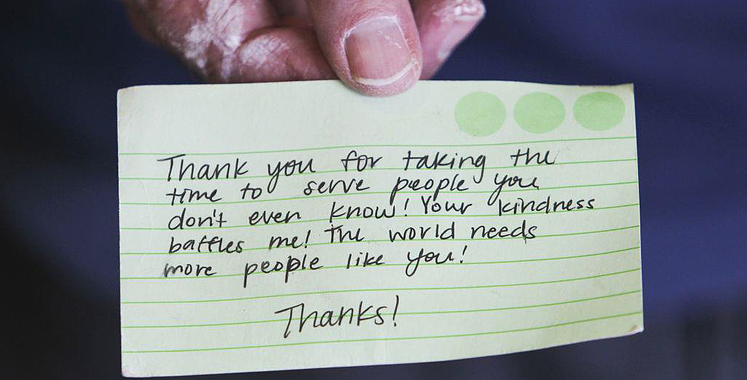 Thank you for taking the
time to serve people you
don't even know! Your kindness
baffles me! The world needs
more people like you!
Thanks!